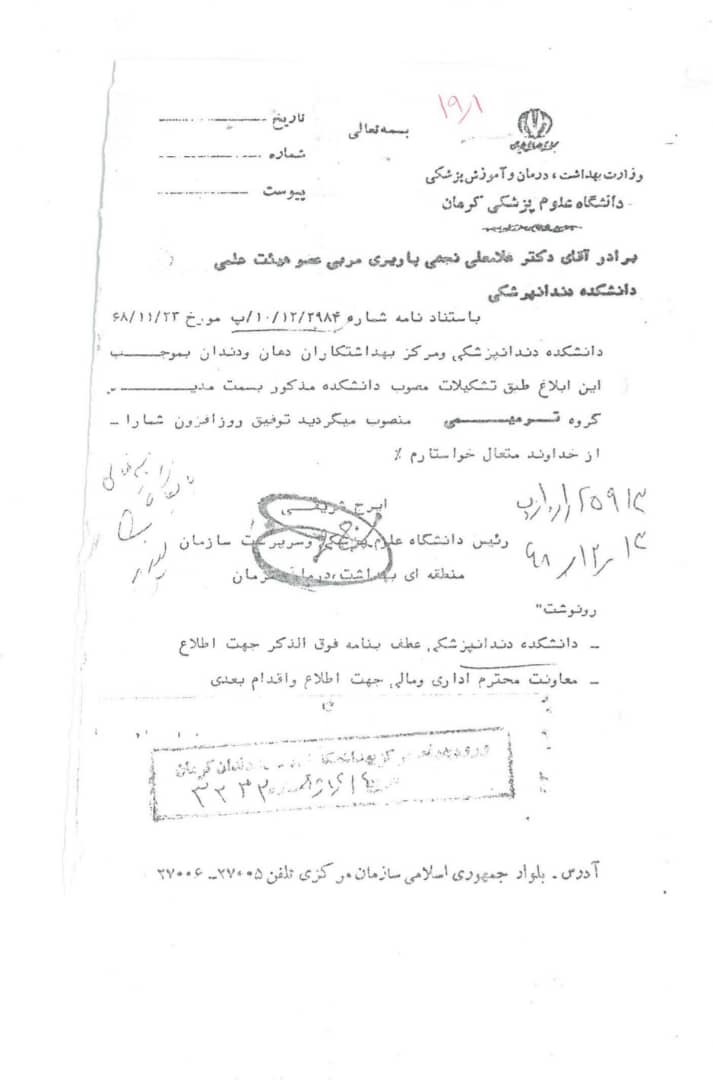 ۱۹/۱
بسمه تعالی
تاریخ
شماره
پیوست
وزارت بهداشت، درمان و آموزش پزشکی
دانشگاه علوم پزشکی کرمان
برادر آقای دکتر غلامعلی نجفی باریزی مربی عضو هیئت علمی
دانشکده دندانپزشکی
باستناد نامه شماره ۱۰/۱۲/۲۹۸۴/پ مورخ ۶۸/۱۱/۲۳
دانشکده دندانپزشکی ومرکز بهداشتکاران دهان ودندان بموجب
این ابلاغ طبق تشکیلات مصوب دانشکده مذکور بسمت مدیر
گروه ترمیمی منصوب میگردید توفیق روزافزون شمارا -
از خداوند متعال خواستارم ٪
ایرج شریفی
رئیس دانشگاه علوم پزشکی وسرپرست سازمان
منطقه ای بهداشت،درمان کرمان
۶۸/۱۲/۱۳
رونوشت"
- دانشکده دندانپزشکی عطف بنامه فوق الذکر جهت اطلاع
- معاونت محترم اداری ومالی جهت اطلاع واقدام بعدی
دندان کرمان
۳۲۳۲
آدرس - بلوار جمهوری اسلامی سازمان مرکزی تلفن ۲۷۰۰۵ - ۲۷۰۰۶